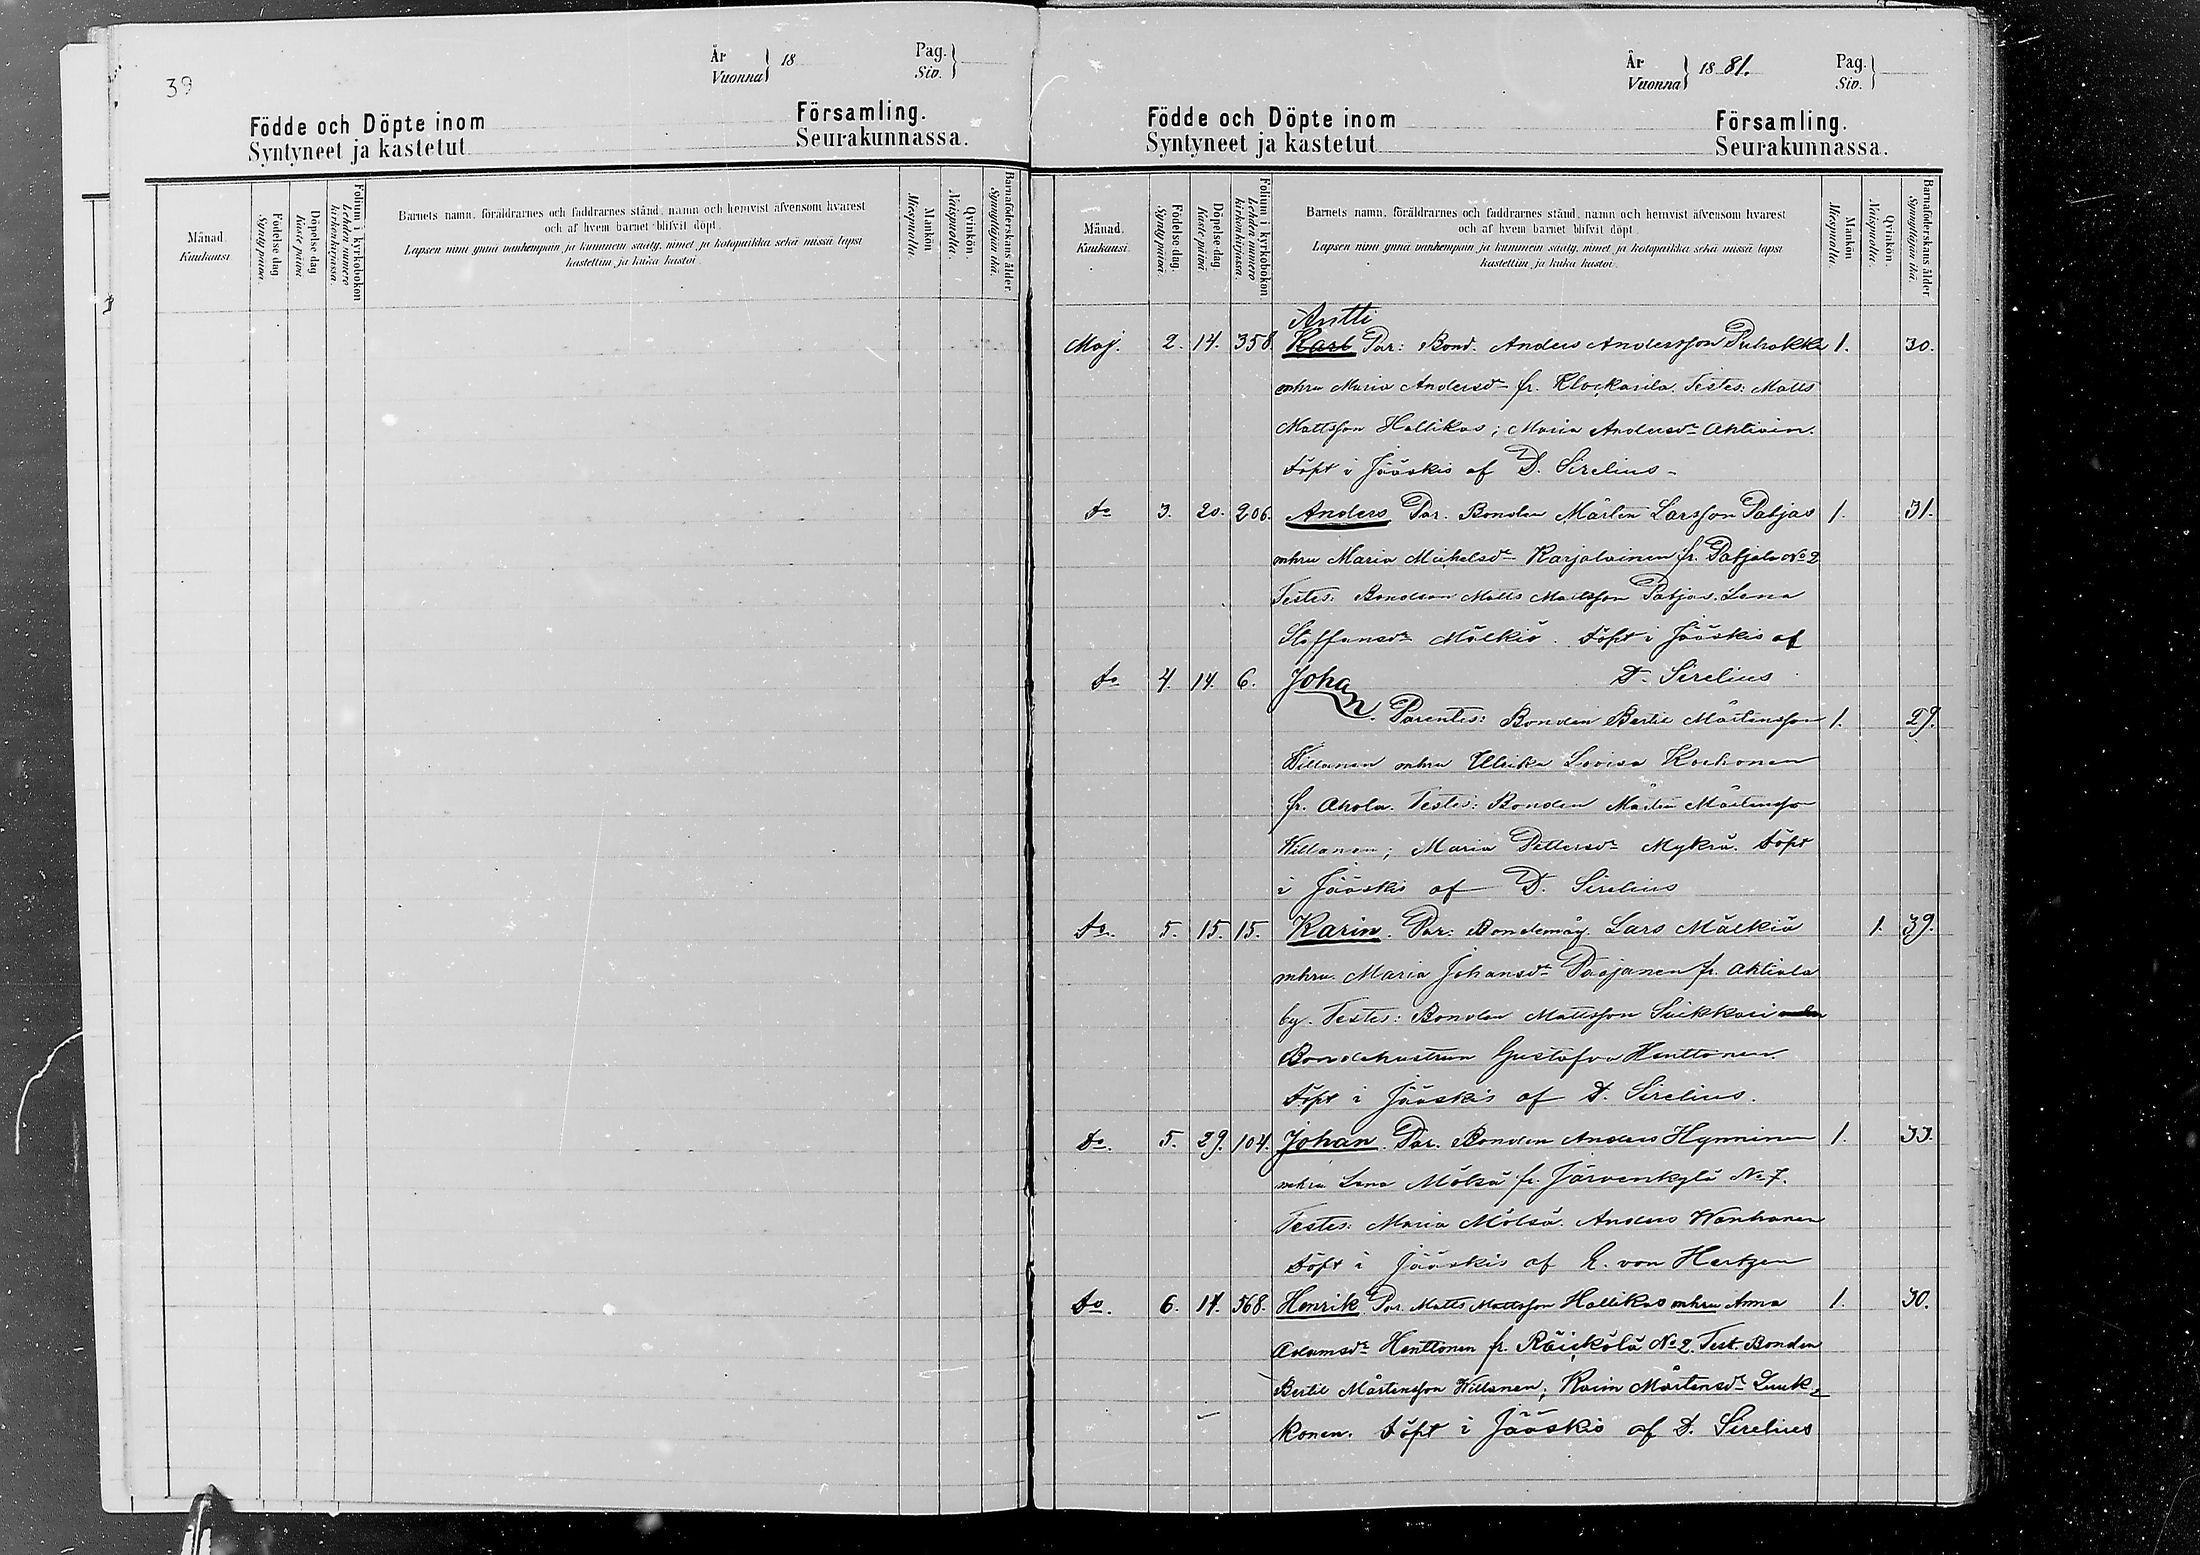 39
År
Vuonna } 18
Pag.
Siv. }
Födde och Döpte inom Församling.
Syntyneet ja kastetut Seurakunnassa.
Månad.
Kuukausi.
Födelse dag.
Synty päivä.
Döpelse dag
Kaste päivä.
Folium i kyrkoboken
Lehden numero kirkonkirjassa
Barnets namn, föräldrarnes och faddrarnes stånd, namn och hemvist äfvensom hvarest
och af hvem barnet blifvit döpt.
Lapsen nimi ynnä vanhempain ja kummein sääty, nimet ja kotopaikka sekä missä lapsi
kastettiin ja kuka kastoi.
Mankön
Miespuolta.
Qvinkön.
Naispuolta.
Barnaföderskans ålder
Synnyttäjän ikä.
År
Vuonna } 1881.
Pag.
Siv. }
Födde och Döpte inom Församling.
Syntyneet ja kastetut Seurakunnassa.
Månad.
Kuukausi.
Födelse dag.
Synty päivä.
Döpelse dag.
Kaste päivä.
Folium i kyrkoboken
Lehden numero kirkonkirjassa.
Barnets namn, föräldrarnes och faddrarnes stånd, namn och hemvist äfvensom hvarest
och af hvem barnet blifvit döpt.
Lapsen nimi ynnä vanhempain ja kummein sääty, nimet ja kotopaikka sekä missä lapsi
kastettiin ja kuka kastoi.
Mankön
Miespuolta.
Qvinkön.
Naispuolta.
Barnaföderskans ålder
Synnyttäjän ikä.
Antti
Maj. 2. 14. 358 Karl Par: Bond. Anders Andersson Puhakka 1. 30.
mhru Maria Andersdr fr. Klockarila. Testes: Matts
Mattsson Hallikas; Maria Andersdr Ahtiain.
Döpt i Jääskis af D. Sirelius-
do 3. 20. 206. Anders Par. Bonden Mårten Larsson Patjas 1. 31.
mhru Maria Michelsdr Karjalainen fr. Patjala No 2
Testes. Bondson Matts Mattsson Patjas. Lena
Staffansdr Mälkiä. Döpt i Jääskis af
D. Sirelius
do 4. 14. 6. Johan
Parentes: Bonden Bertil Mårtensson 1. 29.
Willanen mhru Ulrika Lovisa Korhonen
fr. Ahola. Testes: Bonden Mårten Mårtensson
Willanen; Maria Pettersdr Mykrä. Döpt
i Jääskis af D. Sirelius
do. 5. 15. 15. Karin. Par: Bondemåg Lars Mälkiä 1. 39.
mhru. Maria Johansdr Paajanen fr. Ahtiala
by. Testes: Bonden Mattsson Suikkari
Bondehustrun Gustafva Henttonen.
Döpt i Jääskis af D. Sirelius.
Do. 5. 29. 104. Johan. Par. Bonden Anders Hynninen 1. 33.
mhru Lena Mölsä fr. Järvenkylä No 7.
Testes: Maria Mölsä. Anders Wanhanen
Döpt i Jääskis af E. von Hertzen
do. 6. 14. 568. Henrik Par. Matts Mattsson Hallikas mhru Anna 1. 30.
Adamsdr Henttonen fr. Räikölä No 2. Test. Bonden
Bertil Mårtensson Willanen; Karin Mårtensdr Luuk-
konen. Döpt i Jääskis af D. Sirelius